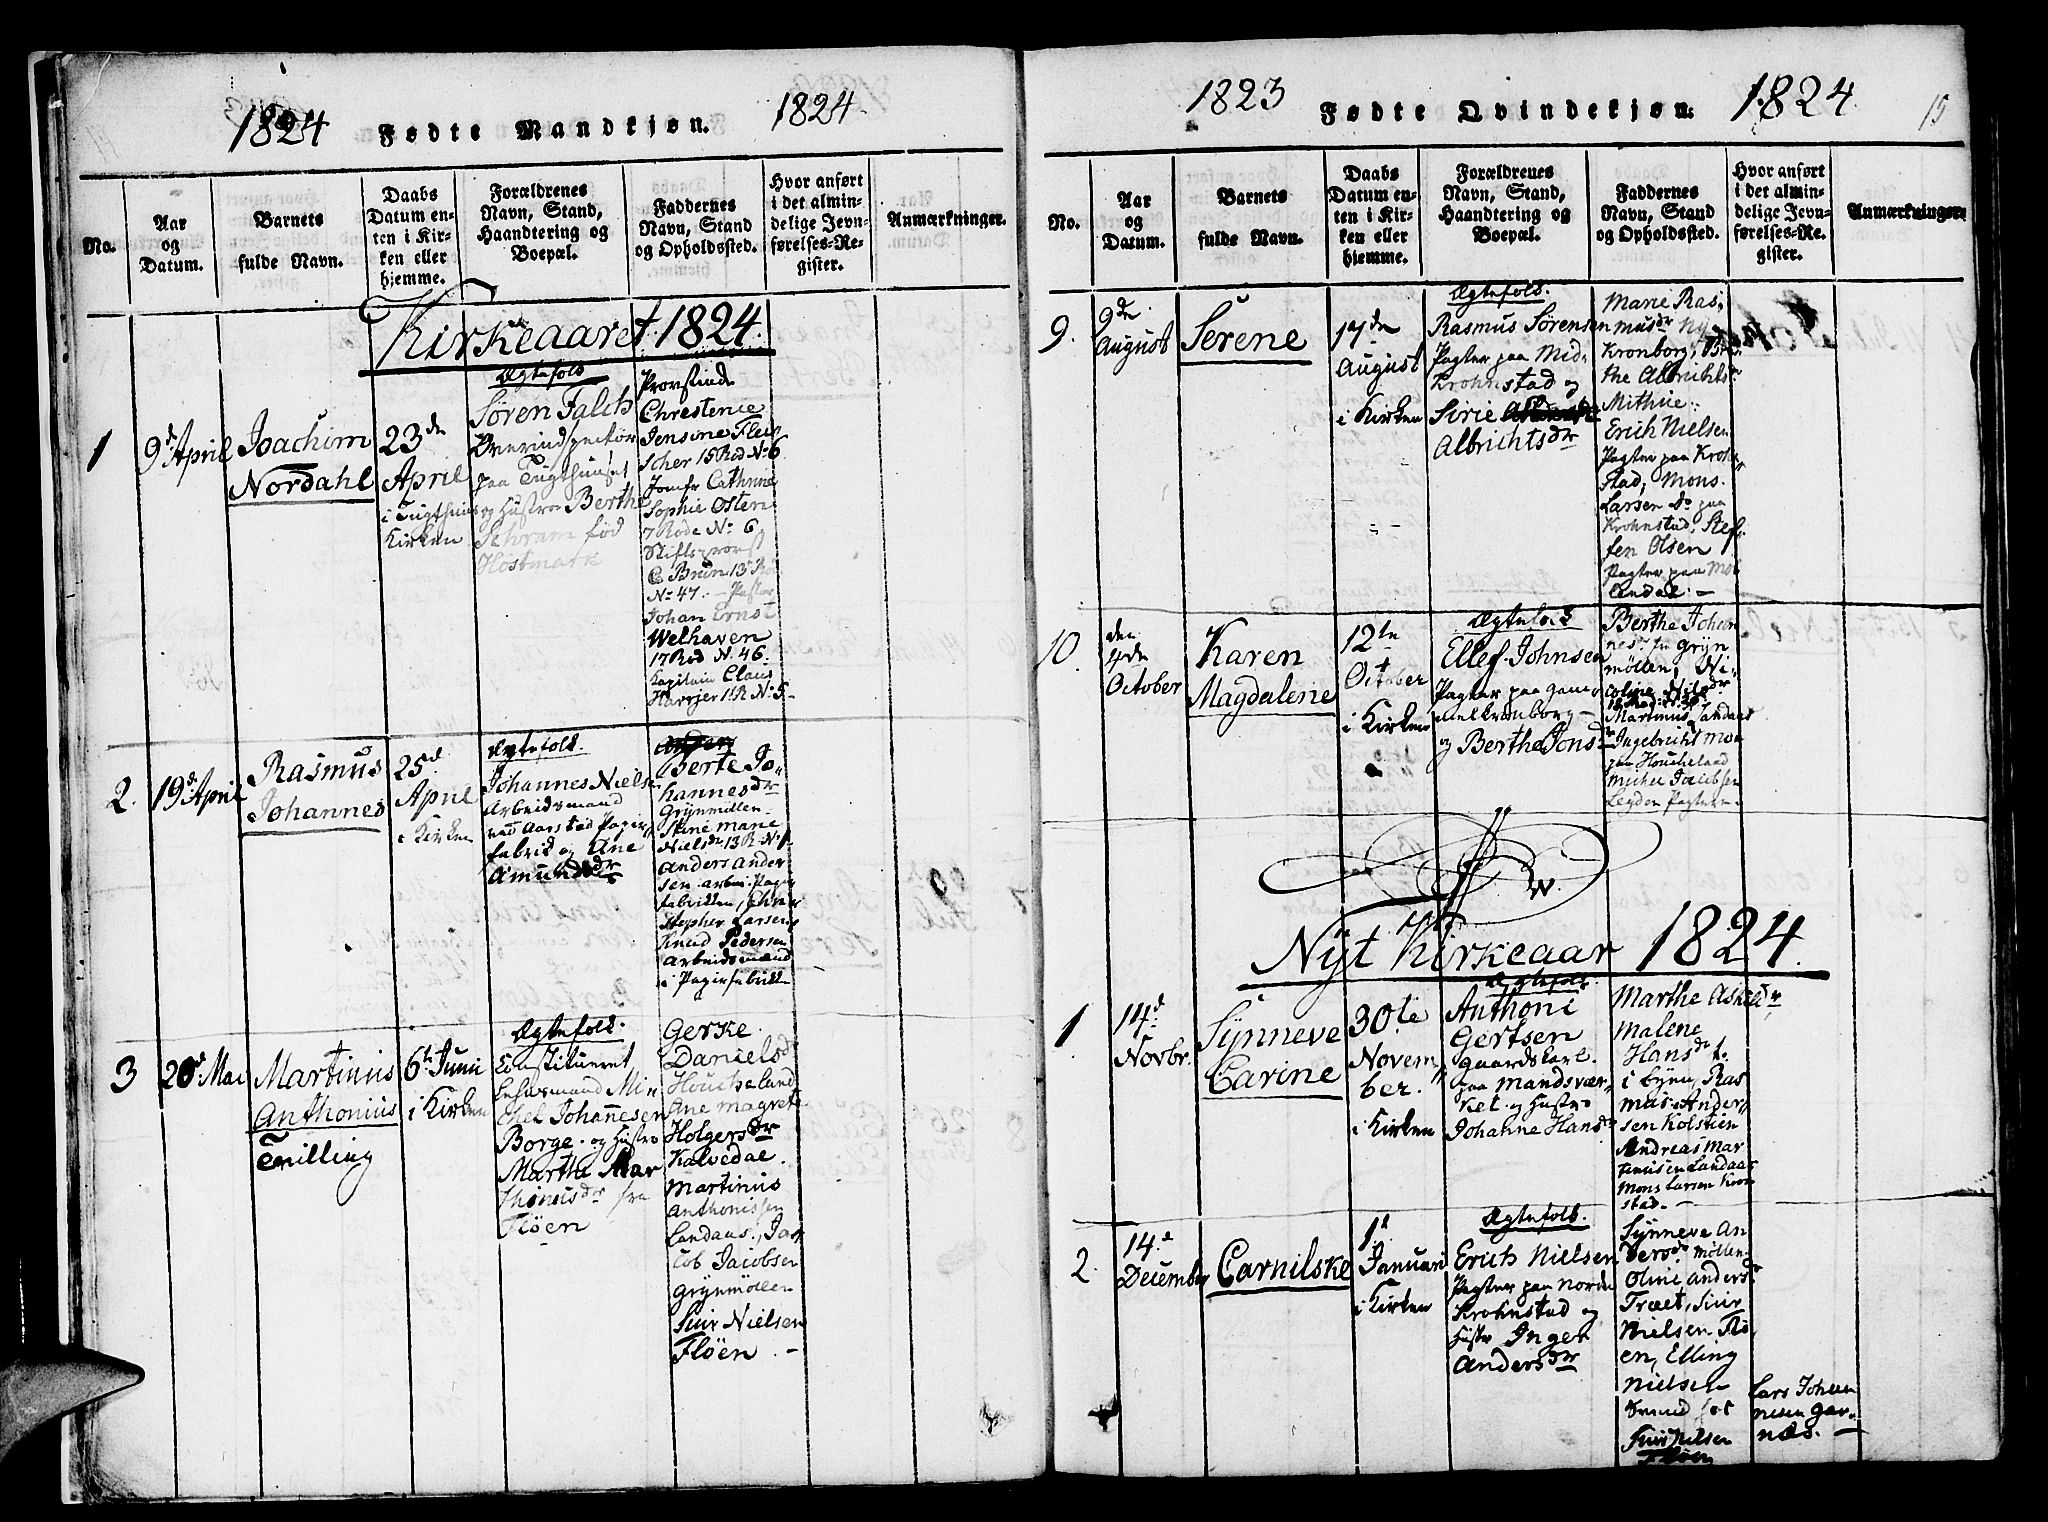 1824 Fødte Mandkjøn. 1824
No.
Aar
og
Datum.
Barnets
fulde Navn.
Daabs
Datum en-
ten i Kir-
ken eller
hjemme.
Forældrenes
Navn, Stand,
Haandtering og
Boepæl.
Faddernes
Navn, Stand
og Opholdssted.
Hvor anført
i det almin-
delige Jevn-
førelses-Re-
gister.
Anmærkninger.
Kirkeaaret 1824.
1
9de April
Joachim
Nordahl
23de
April
i Tugthuus
Kirken
Ægtefolk
Søren Falch
Overinspecteur
paa Tugthuuset
og Hustroe Berthe
Schram fød
Hostmark
Provstinde
Chrestence
Jensine Fleis
scher 15 Rod No 6
Jomfr Cathrine
Sophie Osten
7 Rode No 6
Stiftsprovst
C Brun 13 Ro
No 47. - Pastor
Johan Ernst
Welhaven
17 Rod N. 46.
Capitain Claus
Harrjer 11 R No 5-
2.
19de April
Rasmus
Johannes
25d
April
i Kirken
Ægtefolk.
Johannes Nielse
Arbeidsmand
ved Aarstad Papir
fabrik og Ane
Amundsdr
Berte Jo,,
hannesdr
Grynmøllen
Stine Marie
Nielsdr 13 R. No 1-
Anders Ander
sen arbei. Papir
fabrikken, Chri
stopher Larsen
Knud Pedersen
Arbeidsmænd
i Papirfabrikk
3
20d Mai
Martinus
Anthonius
Tvilling
6te Junii
i Kirken
Ægtefolk.
Constitueret
Lehnsmand Mi,,
chel Johannesen
Borge. og Hustro
Marthe Mar
thinusdr fra
Fløen
Gerke
Danielsdr
Houcheland
Ane Magrete
Holgersdr
Kalvedal.
Martinius
Anthonissen
Landaas., Ja,,
cob Jacobsen
Grynmøllen
Siur Nielsen
Fløen. -
1823 Fødte Qvindekjøn: 1824 15
No.
Aar
og
Datum.
Barnets
fulde Navn.
Daabs
Datum en-
ten i Kir-
ken eller
hjemme.
Forældrenes
Navn, Stand,
Haandtering og
Boepæl.
Faddernes
Navn, Stand
og Opholdssted.
Hvor anført
i det almin-
delige Jevn-
førelses-Re-
gister.
Anmærkninger.
9.
9de
August
Serene
17de
August
i Kirken
Ægtefolk.
Rasmus Sørensen
Pagter paa Mid,,
Krohnstad og
Sirie
Albrichtsdr
Marie Ras,
musdr Ny
Kronborg, Ber
the Albrichtsdr
Erich Nielsen
Pagter paa Kroh,,
stad, Mons
Larsen do paa
Krohnstad, Stef,,
fen Olsen
Pagter paa Mø
lendal. -
10.
den
4de
October
Karen
Magdalene
12te
October
i Kirken
Ægtefolk
Ellef Johnsen
Pagter paa Gam
melkronborg -
og Berthe Jonsdr
Berthe Johan
nesdr fra Gryn
møllen, Ni,
coline Nilsdr
Martinus Landaas
Ingebricht Mo
paa Houcheland
Michel Jacobsen
Legden Pagtere -
Nyt Kirkeaar 1824.
1
14d
Novbr.
Synneve
Carine
30te
Novem
ber.
i Kirken
Ægtefolk
Anthoni
Gertsen
Gaardskarl
paa Mandsvær
ket. og Hustro
Johanne Hansdr
Marthe Askeldr
Malene
Hansdr t.
i byen, Ras
mus Ander,,
sen Kolstien
Andreas Mar
tinusen Landaas
Mons Larsen Kron
stad. -
2.
14.d
December
Carnilske
1d
Januari
i Kirken
Ægtefolk.
Erich Nielsen
Pagter paa Nordre
Krohnstad og
Hustr Inger
Andersdr
Synneve An
dersdr Møllen-
Olini Andersdr
Træet, Siur
Nielsen Flø
en, Elling
Nielsen
Svend for
Siur Nilsen
Fløen
Lars Johan
nesen Gar,,
næs. -